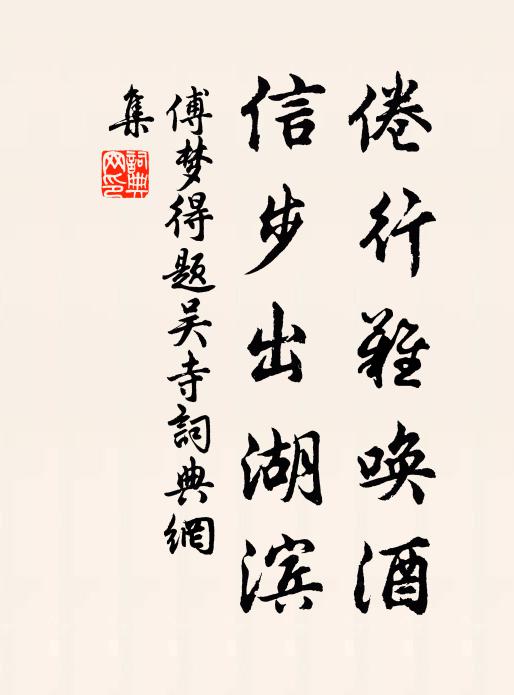 倦行難唤酒
信步出湖滨
傅梦得题吴寺詞典網
集
詞典
网印